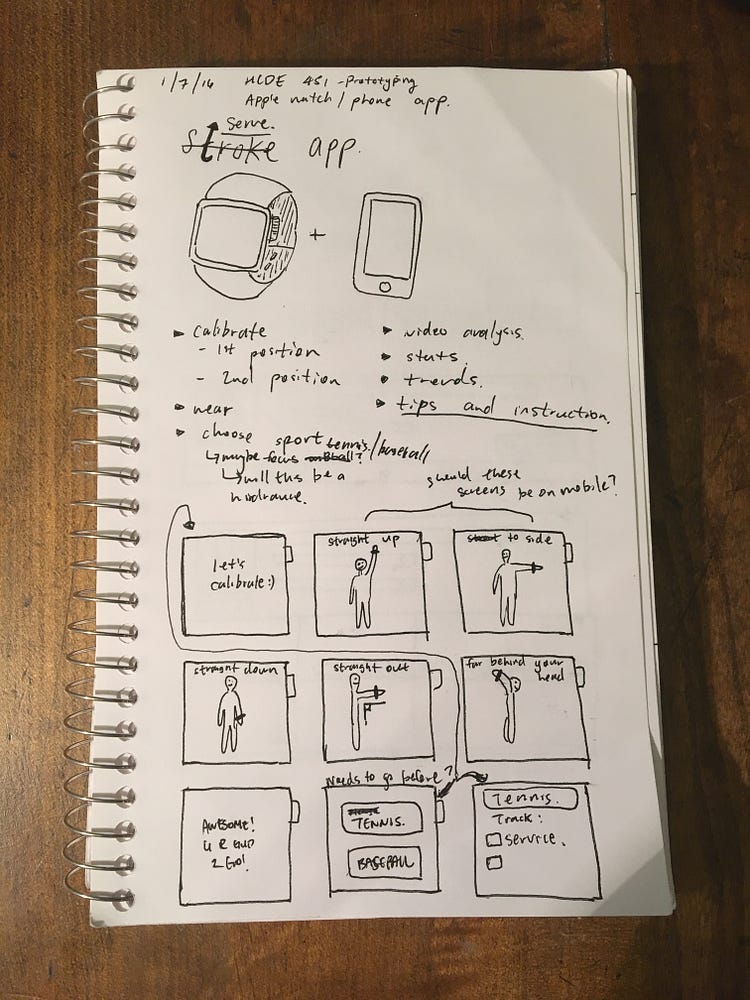 1/7/16 HCDE 451 - Prototyping
Apple watch / phone app.
Serve.
stroke app.
+
▸ calibrate
- 1st position
- 2nd position
▸ wear
▸ choose sport tennis/baseball
↳ maybe focus on 1
↳ will this be a
hindrance.
▸ video analysis.
▸ stats.
▸ trends.
▸ tips and instruction.
should these
screens be on mobile?
let's
calibrate :)
straight up
to side
straight down
straight out
far behind your
head
AWESOME!
U R GUD
2 GO!
Needs to go before?
TENNIS.
BASEBALL
Tennis.
Track:
service.